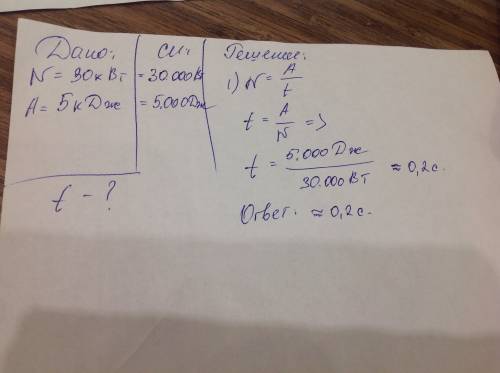 Дано:
N = 30 кВт
A = 5 кДж
t - ?
СИ:
= 30.000 Вт
= 5.000 Дж
Решение:
1) N = A / t
t = A / N =>
t = 5.000 Дж / 30.000 Вт ≈ 0,2 с.
Ответ: ≈ 0,2 с.